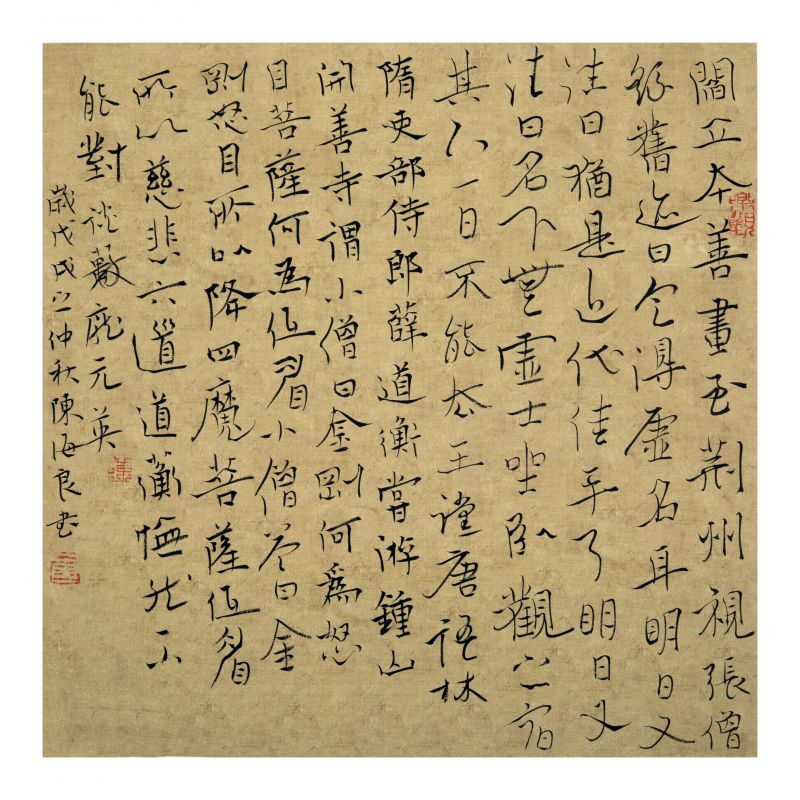 閻立本善畫至荊州視張僧
繇舊迹曰定得虛名耳明日又
往曰猶是近代佳手了明日又
往曰名下無虛士坐臥觀之宿
其下一日不能去王讜唐語林
隋吏部侍郎薛道衡嘗游鍾山
開善寺謂小僧曰金剛何為怒
目菩薩何為低眉小僧答曰金
剛怒目所以降四魔菩薩低眉
所以慈悲六道道衡憮然不
能對談藪龐元英
歲戊戌之仲秋陳海良書